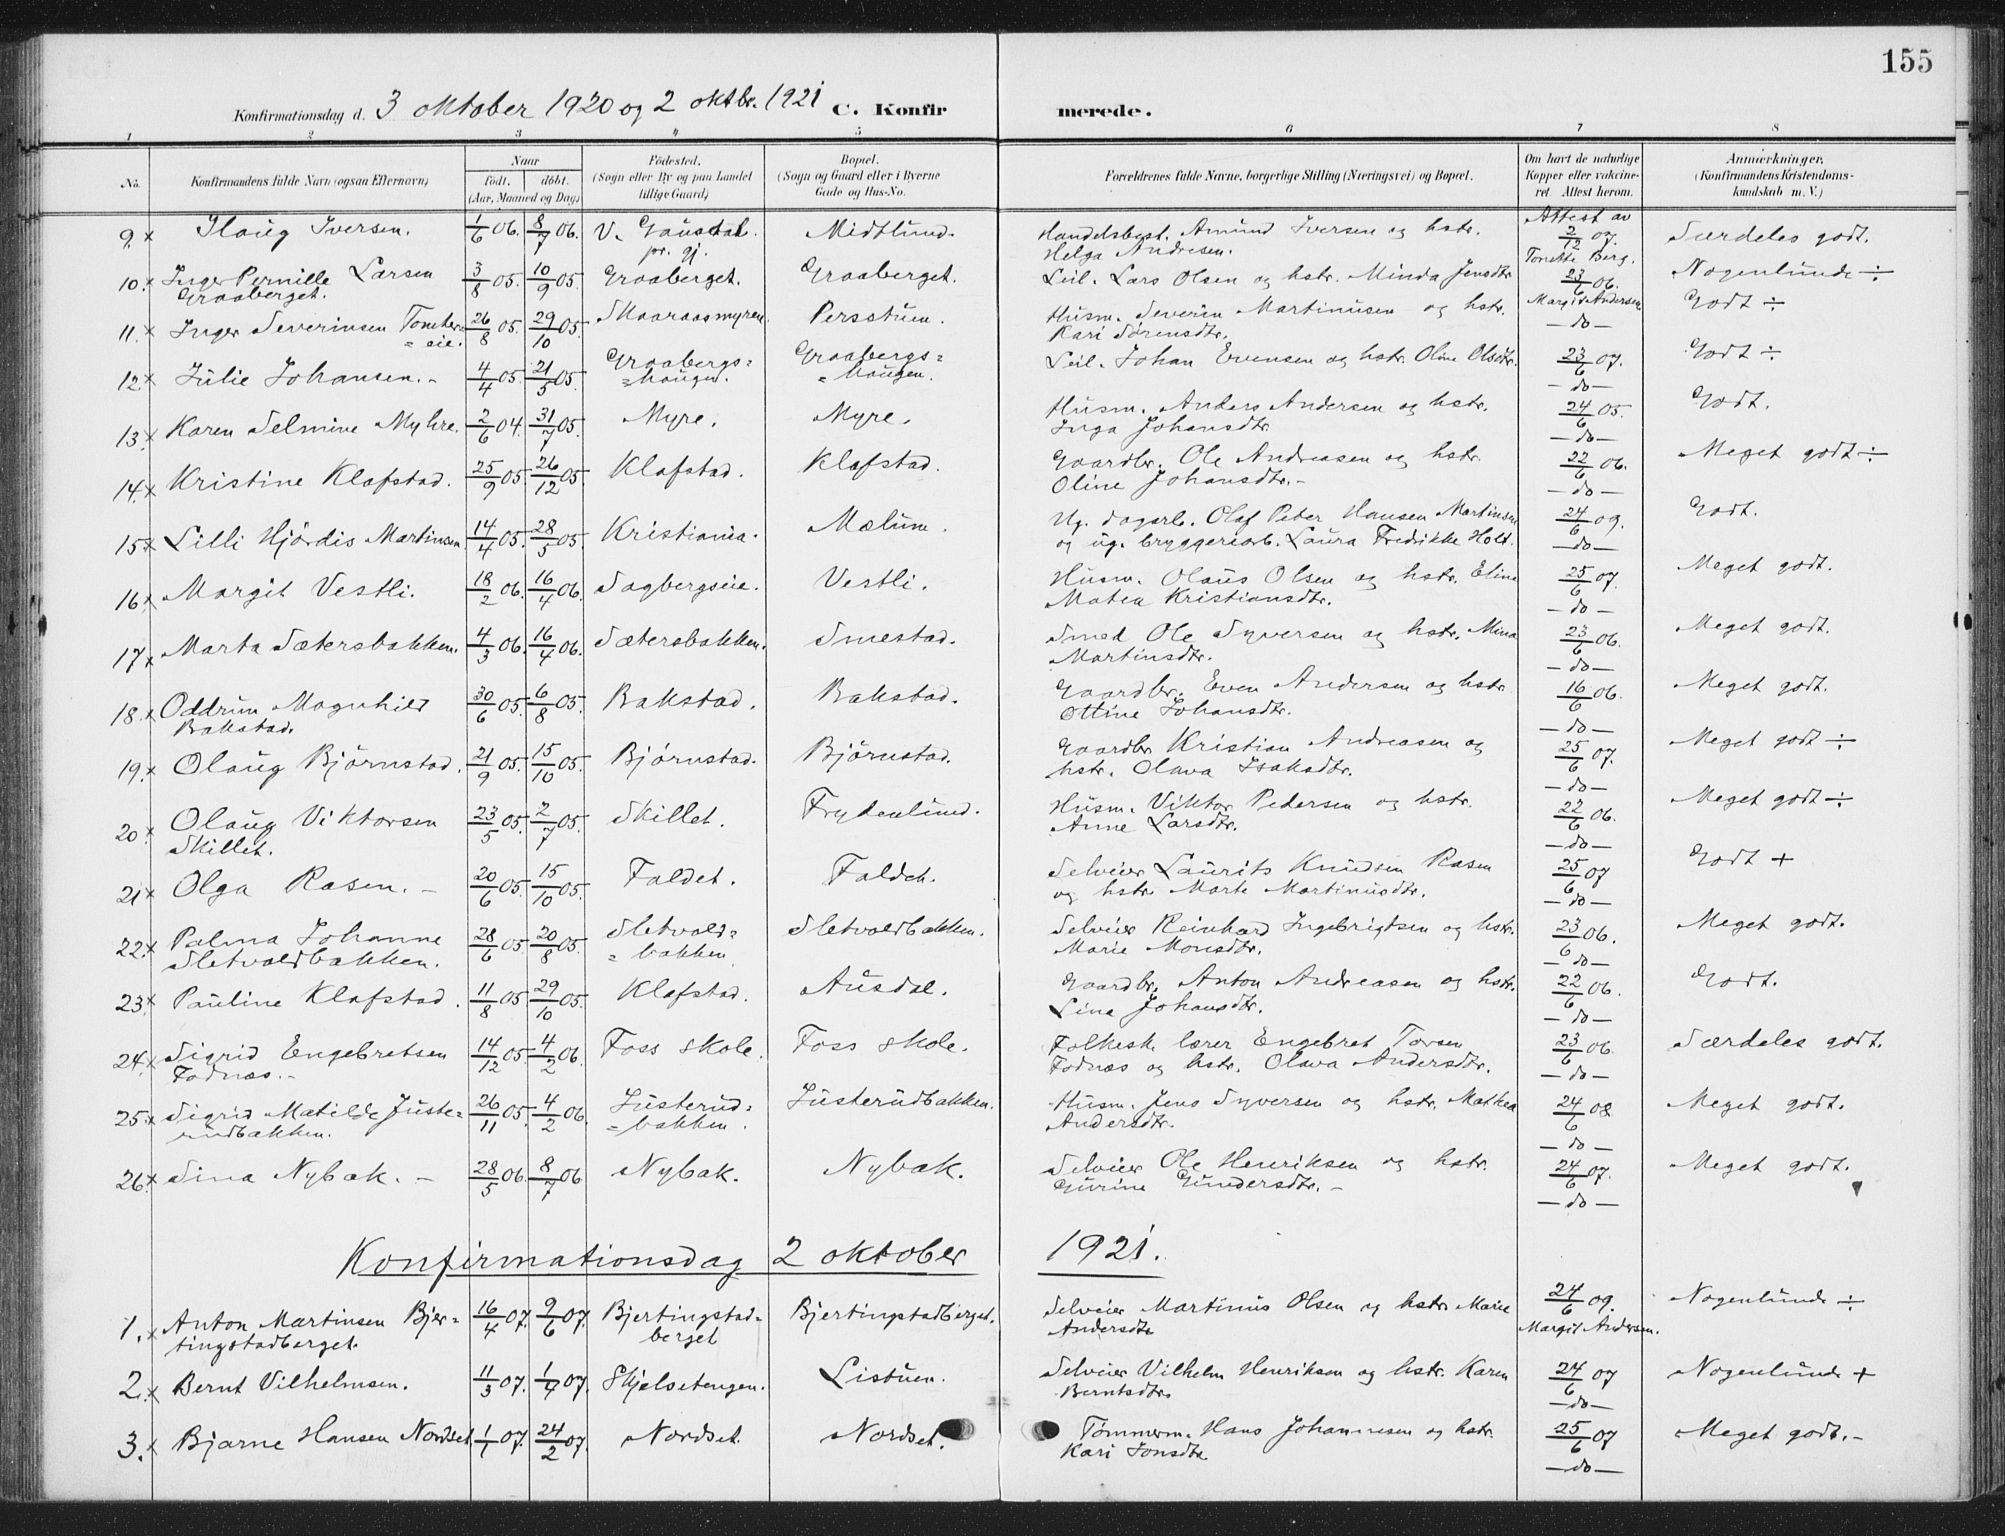 155
Konfirmationsdag d. 3 oktober 1920 og 2 oktbr. 1921 C. Konfirmerede.
1 2 3 4 5 6 7 8
No. Konfirmandens fulde Navn (ogsaa Efternavn) Naar født. døbt. (Aar, Maaned og Dag) Fødested. (Sogn eller By og paa Landet tillige Gaard) Bopæl. (Sogn og Gaard eller i Byerne Gade og Hus-No.) Forældrenes fulde Navne, borgerlige Stilling (Næringsvei) og Bopæl. Om havt de naturlige Kopper eller vaccineret. Attest herom. Anmærkninger. (Konfirmandens Kristendomskundskab m. V.)
9. x Ilaug Iversen. 1/6 06. 8/7 06. V. Gaustad. pr. gj. Midtlund. Handelsbest. Amund Iversen og hstr. Helga Andresen. Attest av 2/12 07. Tonette Berg. Særdeles godt.
10. x Inger Pernille Larsen Graaberget. 3/8 05. 10/9 05. Graaberget. Graaberget. Leil. Lars Olsen og hstr. Minda Jensdtr. 23/6 06. Margit Andersen Nogenlunde ÷
11. x Inger Severinsen Toneter=eie. 26/8 05. 29/10 05. Skaaraasmyren. Persstuen. Husm. Severin Martinusen og hstr. Kari Sørensdtr. —do— Godt ÷
12 x Julie Johansen. - 4/4 05. 21/5 05. Graabergs==haugen. Graabergs==haugen. Leil. Johan Evensen og hstr. Oline Olsdtr. 23/6 07. —do— Godt ÷
13. x Karen Selmine Myhre. 2/6 04. 31/7 05. Myre. Myre. Husm. Anders Andersen og hstr. Inga Johansdtr. 24/6 05. —do— Godt.
14. x Kristine Klafstad. 25/9 05. 26/12 05. Klafstad. Klafstad. Gaardbr. Ole Andreasen og hstr. Oline Johansdtr. - 22/6 06. —do— Meget godt ÷
15. x Lilli Hjørdis Martinsen. 14/4 05. 28/5 05. Kristiania. Mælum. Ug. dagarb. Olaf Peter Hansen Martinsen og ug. bryggeriarb. Laura Fredrikke Hold. 24/6 09. —do— Godt.
16. x Margit Vestli. 18/2 06. 16/4 06. Sagbergseie. Vestli. Husm. Olaus Olsen og hstr. Eline Matea Kristiansdtr. 25/6 07. —do— Meget godt.
17. x Marta Sætersbakken. 4/3 06. 16/4 06. Sætersbakken. Smestad. Smed Ole Syversen og hstr. Mina Martinsdtr. 23/6 06. —do— Meget godt.
18. x Oddrun Magnhild Bakstad. 30/6 05. 6/8 05. Bakstad. Bakstad. Gaardbr. Even Andersen og hstr. Ottine Johansdtr. 16/6 06. —do— Meget godt.
19. x Olaug Bjørnstad. 21/9 05. 15/10 05. Bjørnstad. Bjørnstad. Gaardbr. Kristian Andreasen og hstr. Olava Isaksdtr. 25/6 07. —do— Meget godt ÷
20. x Olaug Viktorsen Skillet. 23/5 05. 2/7 05. Skillet. Frydenlund. Husm. Viktor Pedersen og hstr. Anne Larsdtr. 22/6 06. —do— Meget godt ÷
21 x Olga Rasen. - 20/6 05. 15/10 05. Faldet. Faldet. Selveier Laurits Knudsen Rasen og hstr. Marte Martinusdtr. 25/6 07 —do— Godt +
22. x Palma Johanne Sletvoldbakken. 28/6 05. 20/8 05. Sletvold==bakken. Sletvoldbakken. Selveier Reinhard Ingebrigtsen og hstr. Marie Monsdtr. 23/6 06. —do— Meget godt.
23. x Pauline Klafstad. 11/8 05. 29/10 05. Klafstad. Ausdal. Gaardbr. Anton Andreasen og hstr. Lina Johansdtr. 22/6 06. —do— Godt.
24. x Sigrid Engebretsen Fodnæs. - 14/12 05. 4/2 06. Foss skole. Foss skole. Folkesk. lærer Engebret Torsen Fodnæs og hstr. Olava Andersdtr. 23/6 06. —do— Særdeles godt.
25. x Sigrid Matilde Juste=rudbakken. 26/11 05. 4/2 06. Justerud==bakken. Justerudbakken. Husm. Jens Syversen og hstr. Mathea Andersdtr. 24/6 08 —do— Meget godt.
26. x Sina Nybak. - 28/5 06. 8/7 06 Nybak. Nybak. Selveier Ole Henriksen og hstr. Gurine Gundersdtr. - 24/6 07. —do— Meget godt.
Konfirmationsdag 2 oktober 1921.
1. x Anton Martinsen Bjer=tingstadberget. 16/4 07. 9/6 07. Bjertingstad=berget Bjertingstadberget. Selveier Martinus Olsen og hstr. Marie Andersdtr 24/6 09. Margit Andersen. Nogenlunde ÷
2. x Bernt Vilhelmsen. 11/3 07. 1/4 07. Skjelsetengen. Listuen. Selveier Vilhelm Henriksen og hstr. Karen Berntsdtr. 24/6 07 —do— Nogenlunde +
3. x Bjarne Hansen Nordset 1/1 07. 24/2 07. Nordset. Nordset. Tømmerm. Hans Johannesen og hstr. Kari Jonsdtr 25/6 07 —do— Meget godt. -